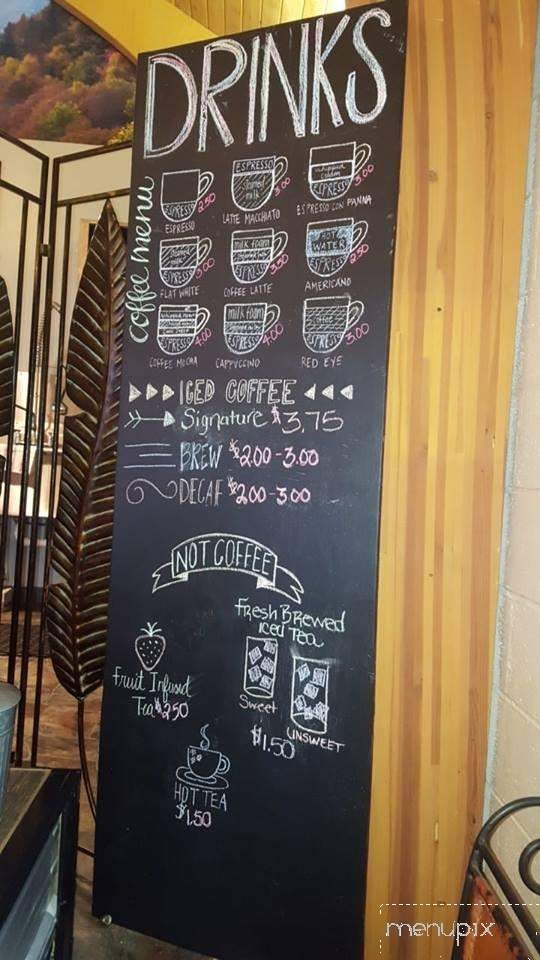 DRINKS
coffee menu
ESPRESSO 2.50
ESPRESSO
ESPRESSO
Steamed milk 3.00
LATTE MACCHIATO
whipped cream
ESPRESSO 3.00
ESPRESSO CON PANNA
Steamed milk
ESPRESSO 3.00
FLAT WHITE
milk foam
ESPRESSO 3.50
COFFEE LATTE
HOT WATER
ESPRESSO 2.50
AMERICANO
ESPRESSO 4.00
COFFEE MOCHA
milk foam
ESPRESSO 4.00
CAPPUCCINO
coffee
ESPRESSO 3.00
RED EYE
ICED COFFEE
Signature $3.75
BREW $2.00-3.00
DECAF $2.00-3.00
NOT COFFEE
Fruit Infused
Tea $2.50
Fresh Brewed
Iced Tea
Sweet
UNSWEET
$1.50
HOT TEA
$1.50
menupix